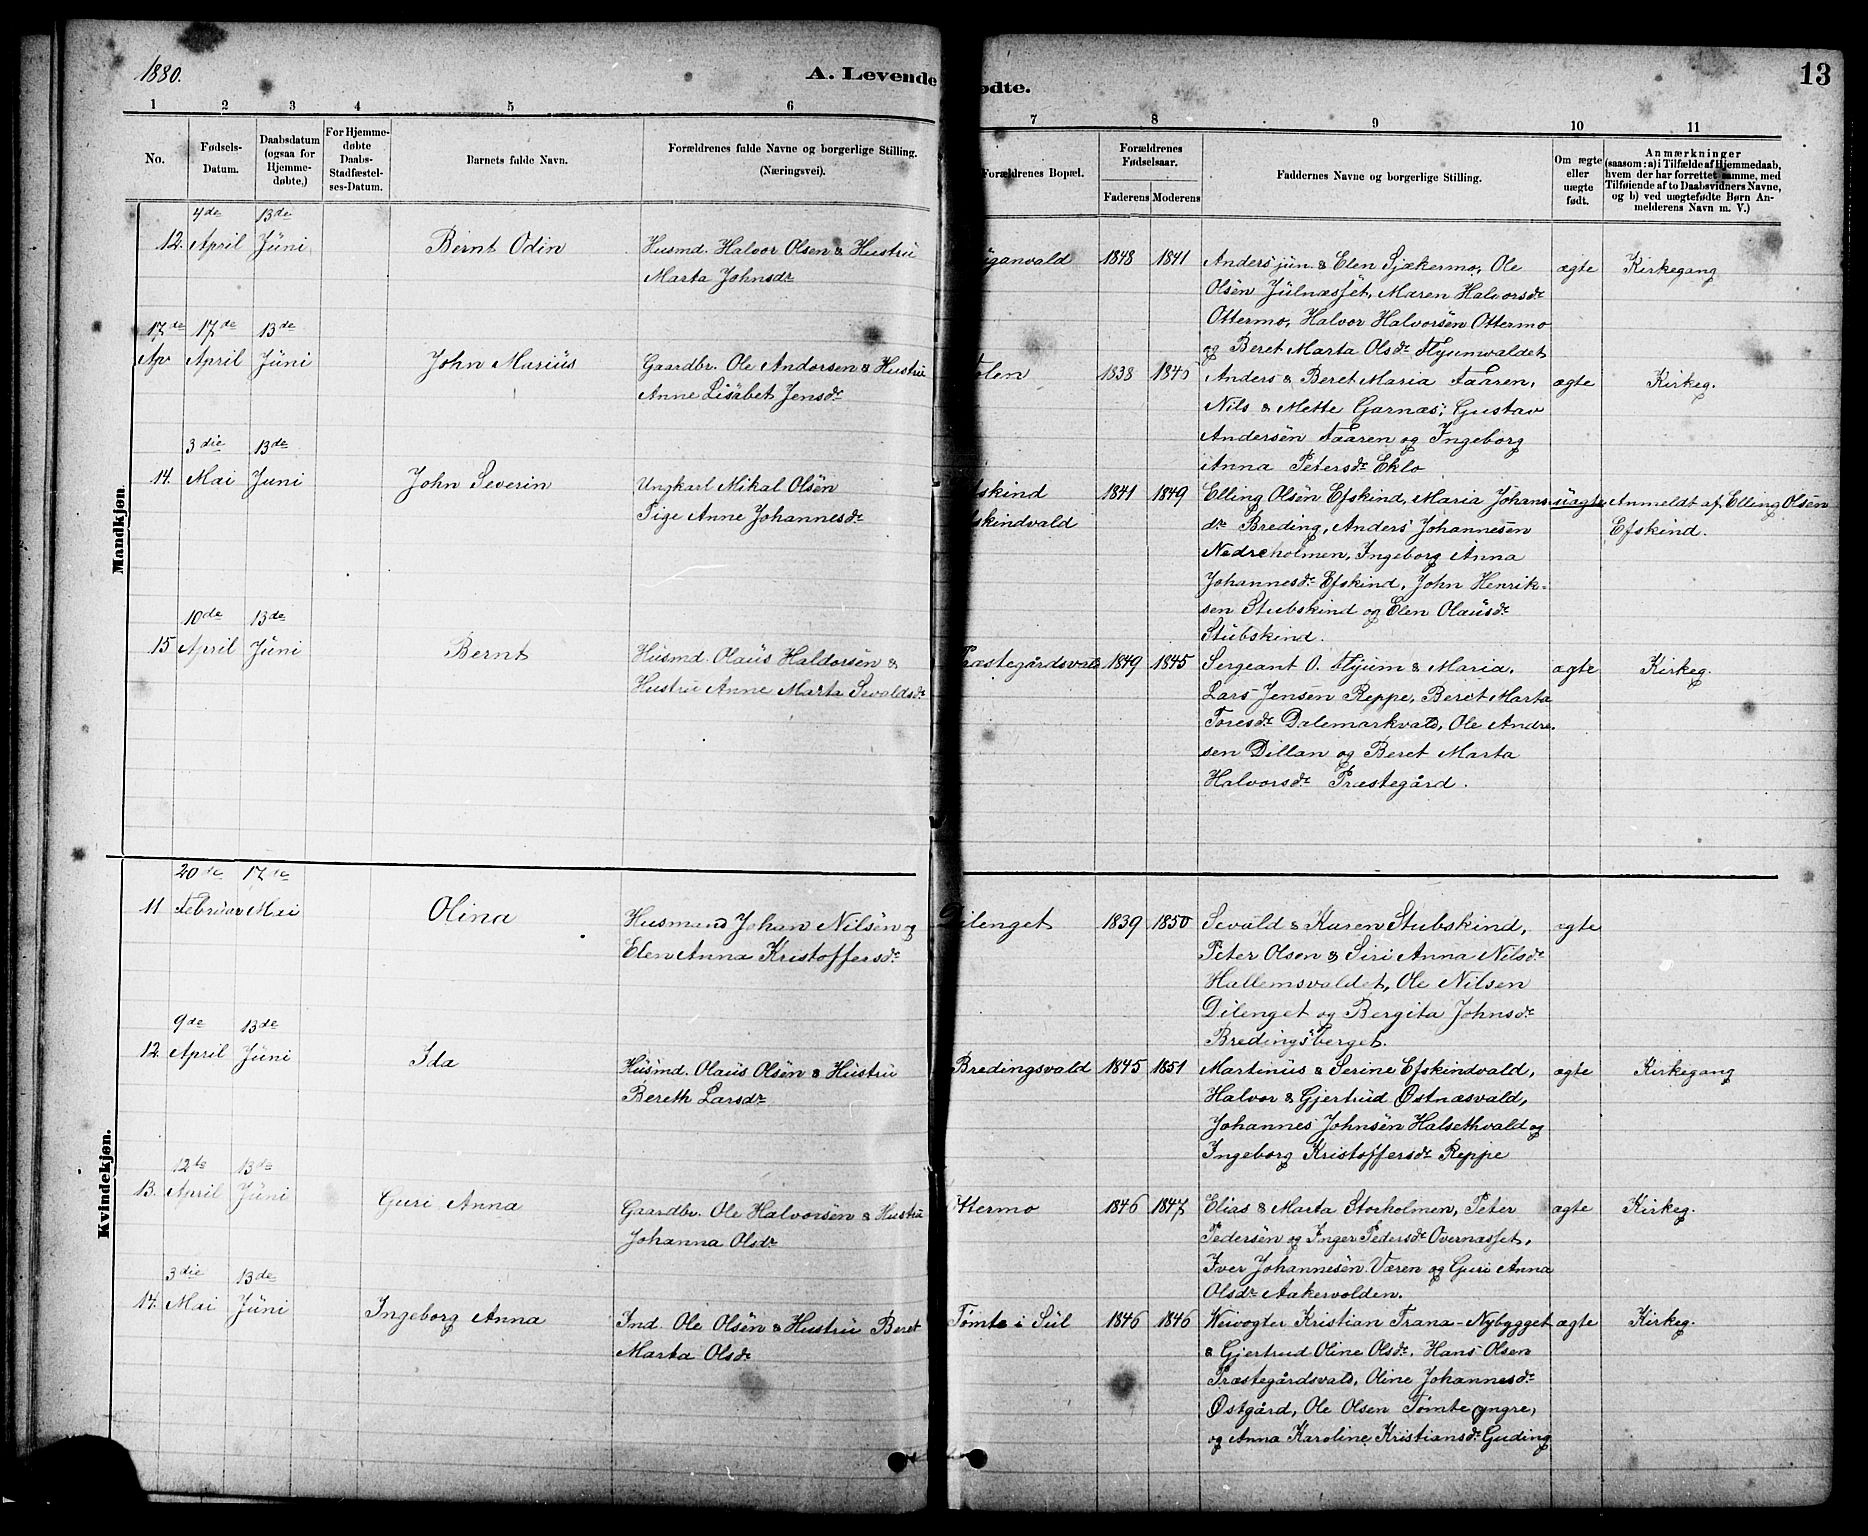 1880.
A. Levende
ødte.
13
1 2 3 4 5 6 7 8 9 10 11
No.
Fødsels-
Datum.
Daabsdatum
(ogsaa for
Hjemme-
døbte.)
For Hjemme-
døbte
Daabs-
Stadfæstel-
ses-Datum.
Barnets fulde Navn.
Forældrenes fulde Navne og borgerlige Stilling.
(Næringsvei).
Forældrenes Bopæl.
Forældrenes
Fødselsaar.
Faderens Moderens
Faddernes Navne og borgerlige Stilling.
Om ægte
eller
uægte
født.
Anmærkninger
(saasom: a) i Tilfælde af Hjemmedaab,
hvem der har forrettet samme, med
Tilføiende af to Daabsvidners Navne,
og b) ved uægtefødte Børn An-
melderens Navn m. V.)
Mandkjøn.
4de 13de
12. April Juni Bernt Odin Husmd. Halvor Olsen & Hustru
Marta Johnsdr
iganvald 1848 1841
Anders jun. & Elen Sjækermo, Ole
Olsen Julnæsset, Maren Halvorsdr
Ottermo, Halvor Halvorsen Ottermo
og Beret Marta Olsdr Flyumvaldet
ægte Kirkegang
17de 17de 13de
Ap April Juni John Marius Gaardbr. Ole Andersen & Hustru
Anne Lisabet Jensdr
olen 1838 1840
Anders & Beret Maria Faaren,
Nils & Mette Garnæs, Gustav
Andersen Faaren og Ingeborg
Anna Petersdr Eklo
ægte Kirkeg.
3die 13de
14. Mai Juni John Severin Ungkarl Mikal Olsen
Pige Anne Johannesdr
fskind
fskindvald
1841 1849
Elling Olsen Efskind, Maria Johans
dr Breding, Anders Johannesen
Nedreholmen, Ingeborg Anna
Johannesdr Efskind, John Henrik-
sen Stubskind og Elen Olausdr
Stubskind.
uægte Anmeldt af Elling Olsen
Efskind.
10de 13de
15 April Juni Bernt Husmd. Olaus Haldorsen &
Hustru Anne Marta Sevaldsdr
Præstegårdsvald 1849 1845
Sergeant O. Flyum & Maria,
Lars Jensen Reppe, Beret Marta
Toresdr Dalemarkvald, Ole Andre
sen Dillan og Beret Marta
Halvorsdr Præstegård.
ægte Kirkeg.
Kvindekjøn.
20de 17de
11 Februar Mai Olina Husmand Johan Nilsen og
Elen Anna Kristoffersdr
Dilenget 1839 1850
Sevald & Karen Stubskind,
Peter Olsen & Siri Anna Nilsdr
Hallemsvaldet, Ole Nilsen
Dilenget og Bergita Johnsdr
Bredingsberget.
ægte
9de 13de
12. April Juni Ida Husmd. Olaus Olsen & Hustru
Bereth Larsdr
Bredingsvald 1845 1851
Martinus & Serine Efskindvald,
Halvor & Gjertrud Østnæsvald,
Johannes Johnsen Halsethvald og
Ingeborg Kristoffersdr Reppe
ægte Kirkegang
12te 13de
13. April Juni Guri Anna Gaardbr. Ole Halvorsen & Hustru
Johanna Olsdr
Ottermo 1846 1847
Elias & Marta Storholmen, Peter
Pedersen og Inger Pedersdr Overnæsset,
Iver Johannesen Væren og Guri Anna
Olsdr Aakervolden.
ægte Kirkeg.
3die 13de
14. Mai Juni Ingeborg Anna Ind. Ole Olsen & Hustru Beret
Marta Olsdr
Tømte i Sul 1846 1846
Veivogter Kristian Trana-Nybygget
& Gjertrud Oline Olsdr. Hans Olsen
Præstegårdsvald, Oline Johannesdr
Østgård, Ole Olsen Tømte yngre,
og Anna Karoline Kristiansdr Guding
ægte Kirkeg.